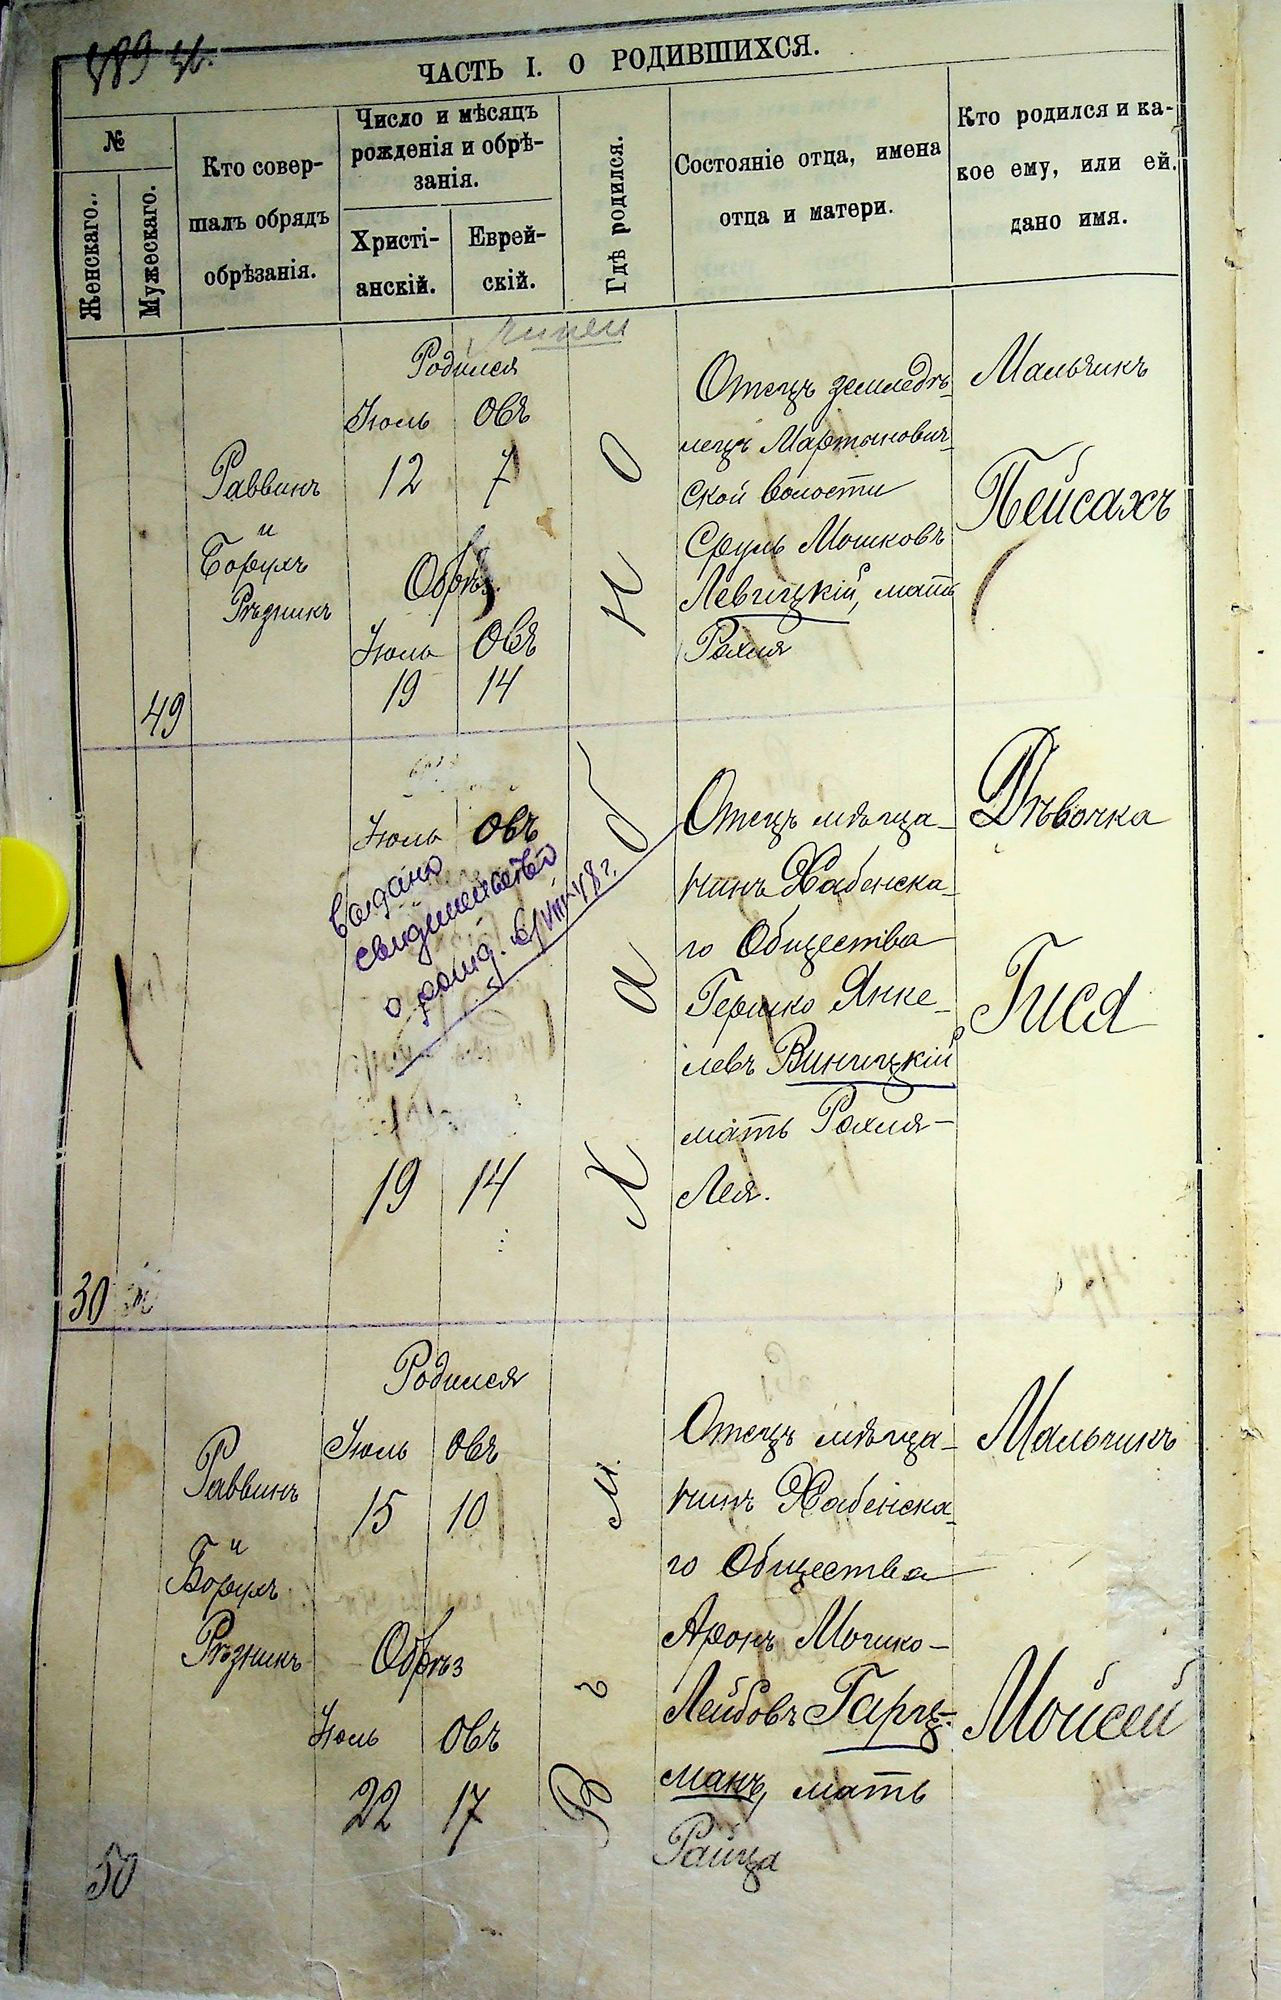 489 зв.
ЧАСТЬ I. О РОДИВШИХСЯ.
№
Женскаго.
Мужескаго.
Кто совер-
шалъ обрядъ
обрѣзанія.
Число и мѣсяцъ
рожденія и обрѣ-
занія.
Христі-
анскій.
Еврей-
скій.
Гдѣ родился.
Состояніе отца, имена
отца и матери.
Кто родился и ка-
кое ему, или ей.
дано имя.
49
Раввинъ
и
Борухъ
Рѣзникъ
Родился
Іюль Овъ
12 7
Обрѣз.
Іюль Овъ
19 14
Отецъ земледѣ-
лецъ Мартынович-
ской волости
Сруль Мошковъ
Левицкій, мать
Рахля
Мальчикъ
Пейсахъ
30
Іюль Овъ
Выдано
свидетельство
о рожд. 6/VIII-48 г.
19 14
Отецъ мѣща-
нинъ Хабенска-
го Общества
Гершко Янке-
левъ Виницкій
мать Рахля-
Лея.
Дѣвочка
Гися
50
Раввинъ
и
Борухъ
Рѣзникъ
Родился
Іюль Овъ
15 10
Обрѣз
Іюль Овъ
22 17
Въ м. Хабно
Отецъ мѣща-
нинъ Хабенска-
го Общества
Аронъ Мошко-
Лейбовъ Гарц-
манъ, мать
Райца
Мальчикъ
Мойсей